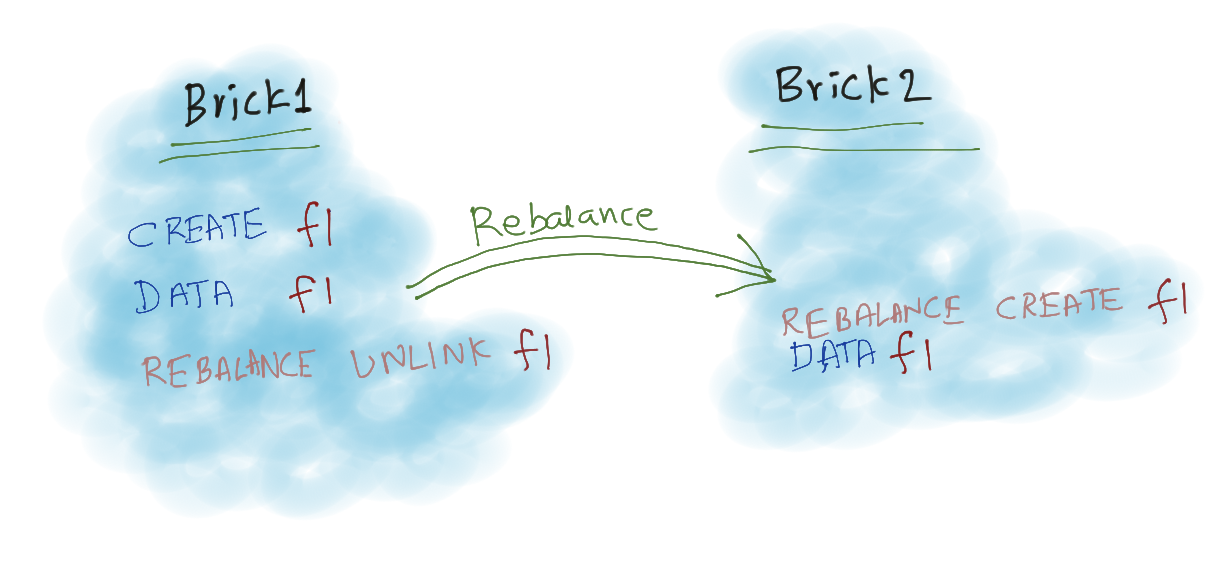 Brick1
CREATE f1
DATA f1
REBALANCE UNLINK f1
Rebalance
Brick2
REBALANCE CREATE f1
DATA f1